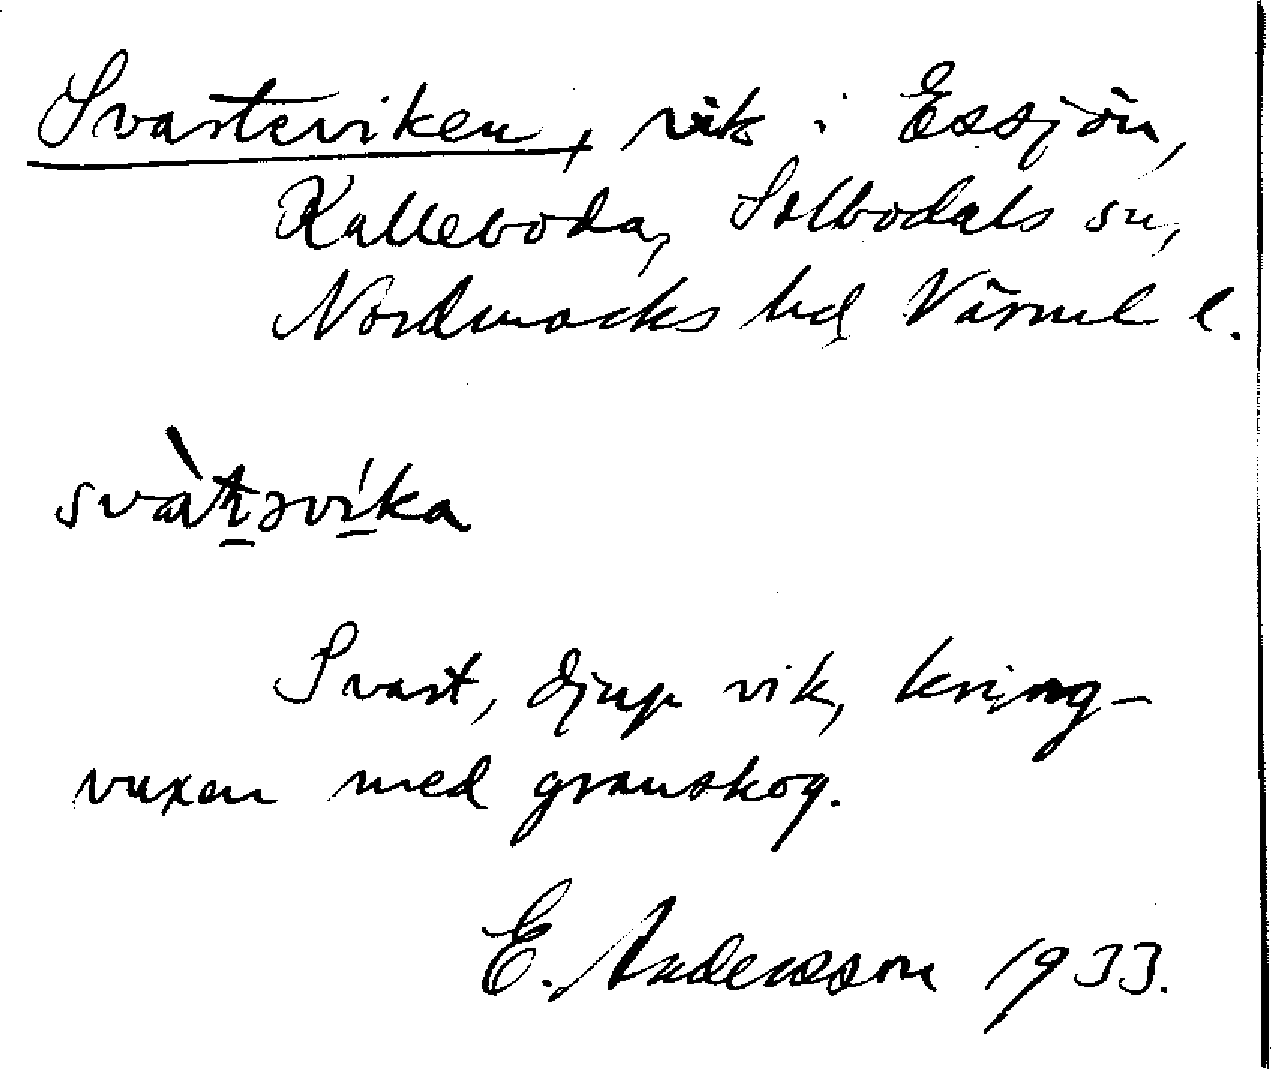 Svarteviken, vik i Essjön,
Kalleboda, Sillbodals sn,
Nordmarks hd Värml l.
svàt̠əví̠ka
Svart, djup vik, kring-
vuxen med granskog.
E. Andersson 1933.